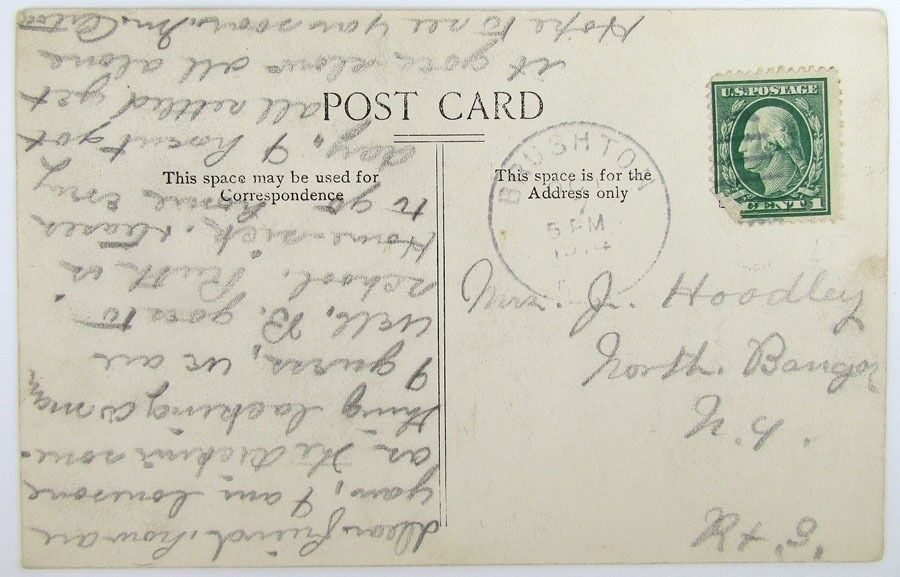 POST CARD
This space may be used for
Correspondence
This space is for the
Address only
U.S. POSTAGE
CENT 1
BRUSHTON
5 PM
1914
Mrs. J. Hoadley
North. Bangor
N.Y.
Dear friend. how are
you, I am lonesome
as the Dickens some-
thing lacking main
I guess, we are
well, B. goes to
school. Ruth is
Home-sick, teases
to go home evry
day. I hasent got
all settled yet
it goes slow all alone
Hope to see you soon.